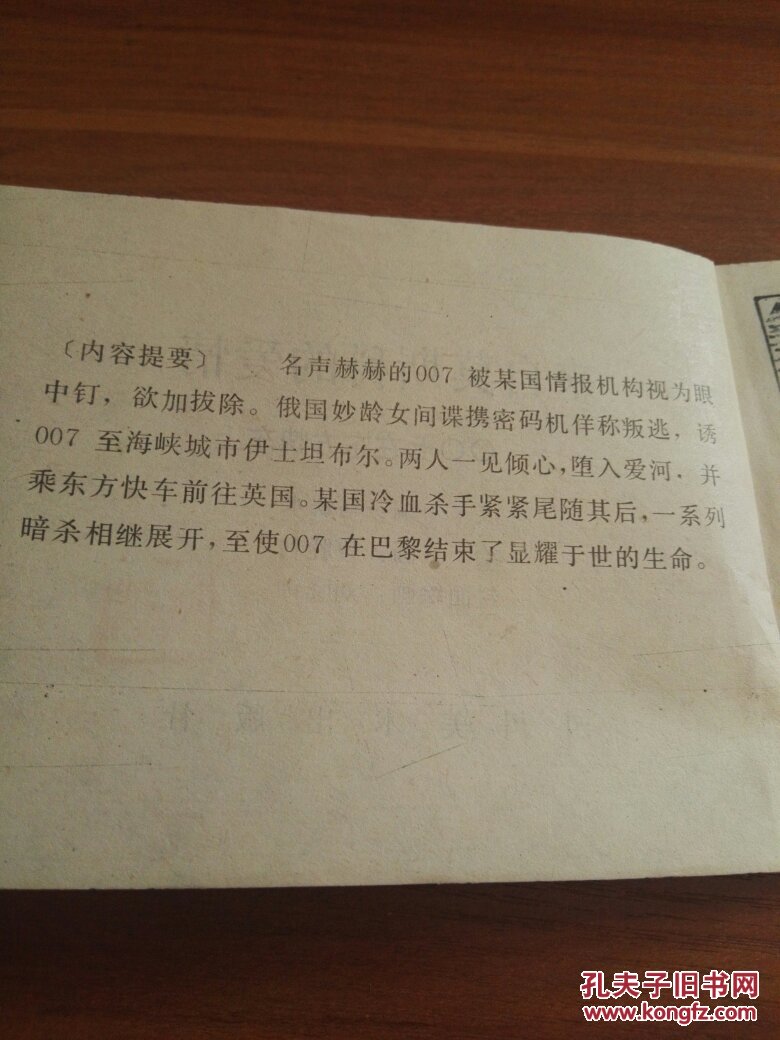 〔内容提要〕 名声赫赫的007 被某国情报机构视为眼
中钉，欲加拔除。俄国妙龄女间谍携密码机佯称叛逃，诱
007 至海峡城市伊士坦布尔。两人一见倾心，堕入爱河，并
乘东方快车前往英国。某国冷血杀手紧紧尾随其后，一系列
暗杀相继展开，至使007 在巴黎结束了显耀于世的生命。
孔夫子旧书网
www.kongfz.com